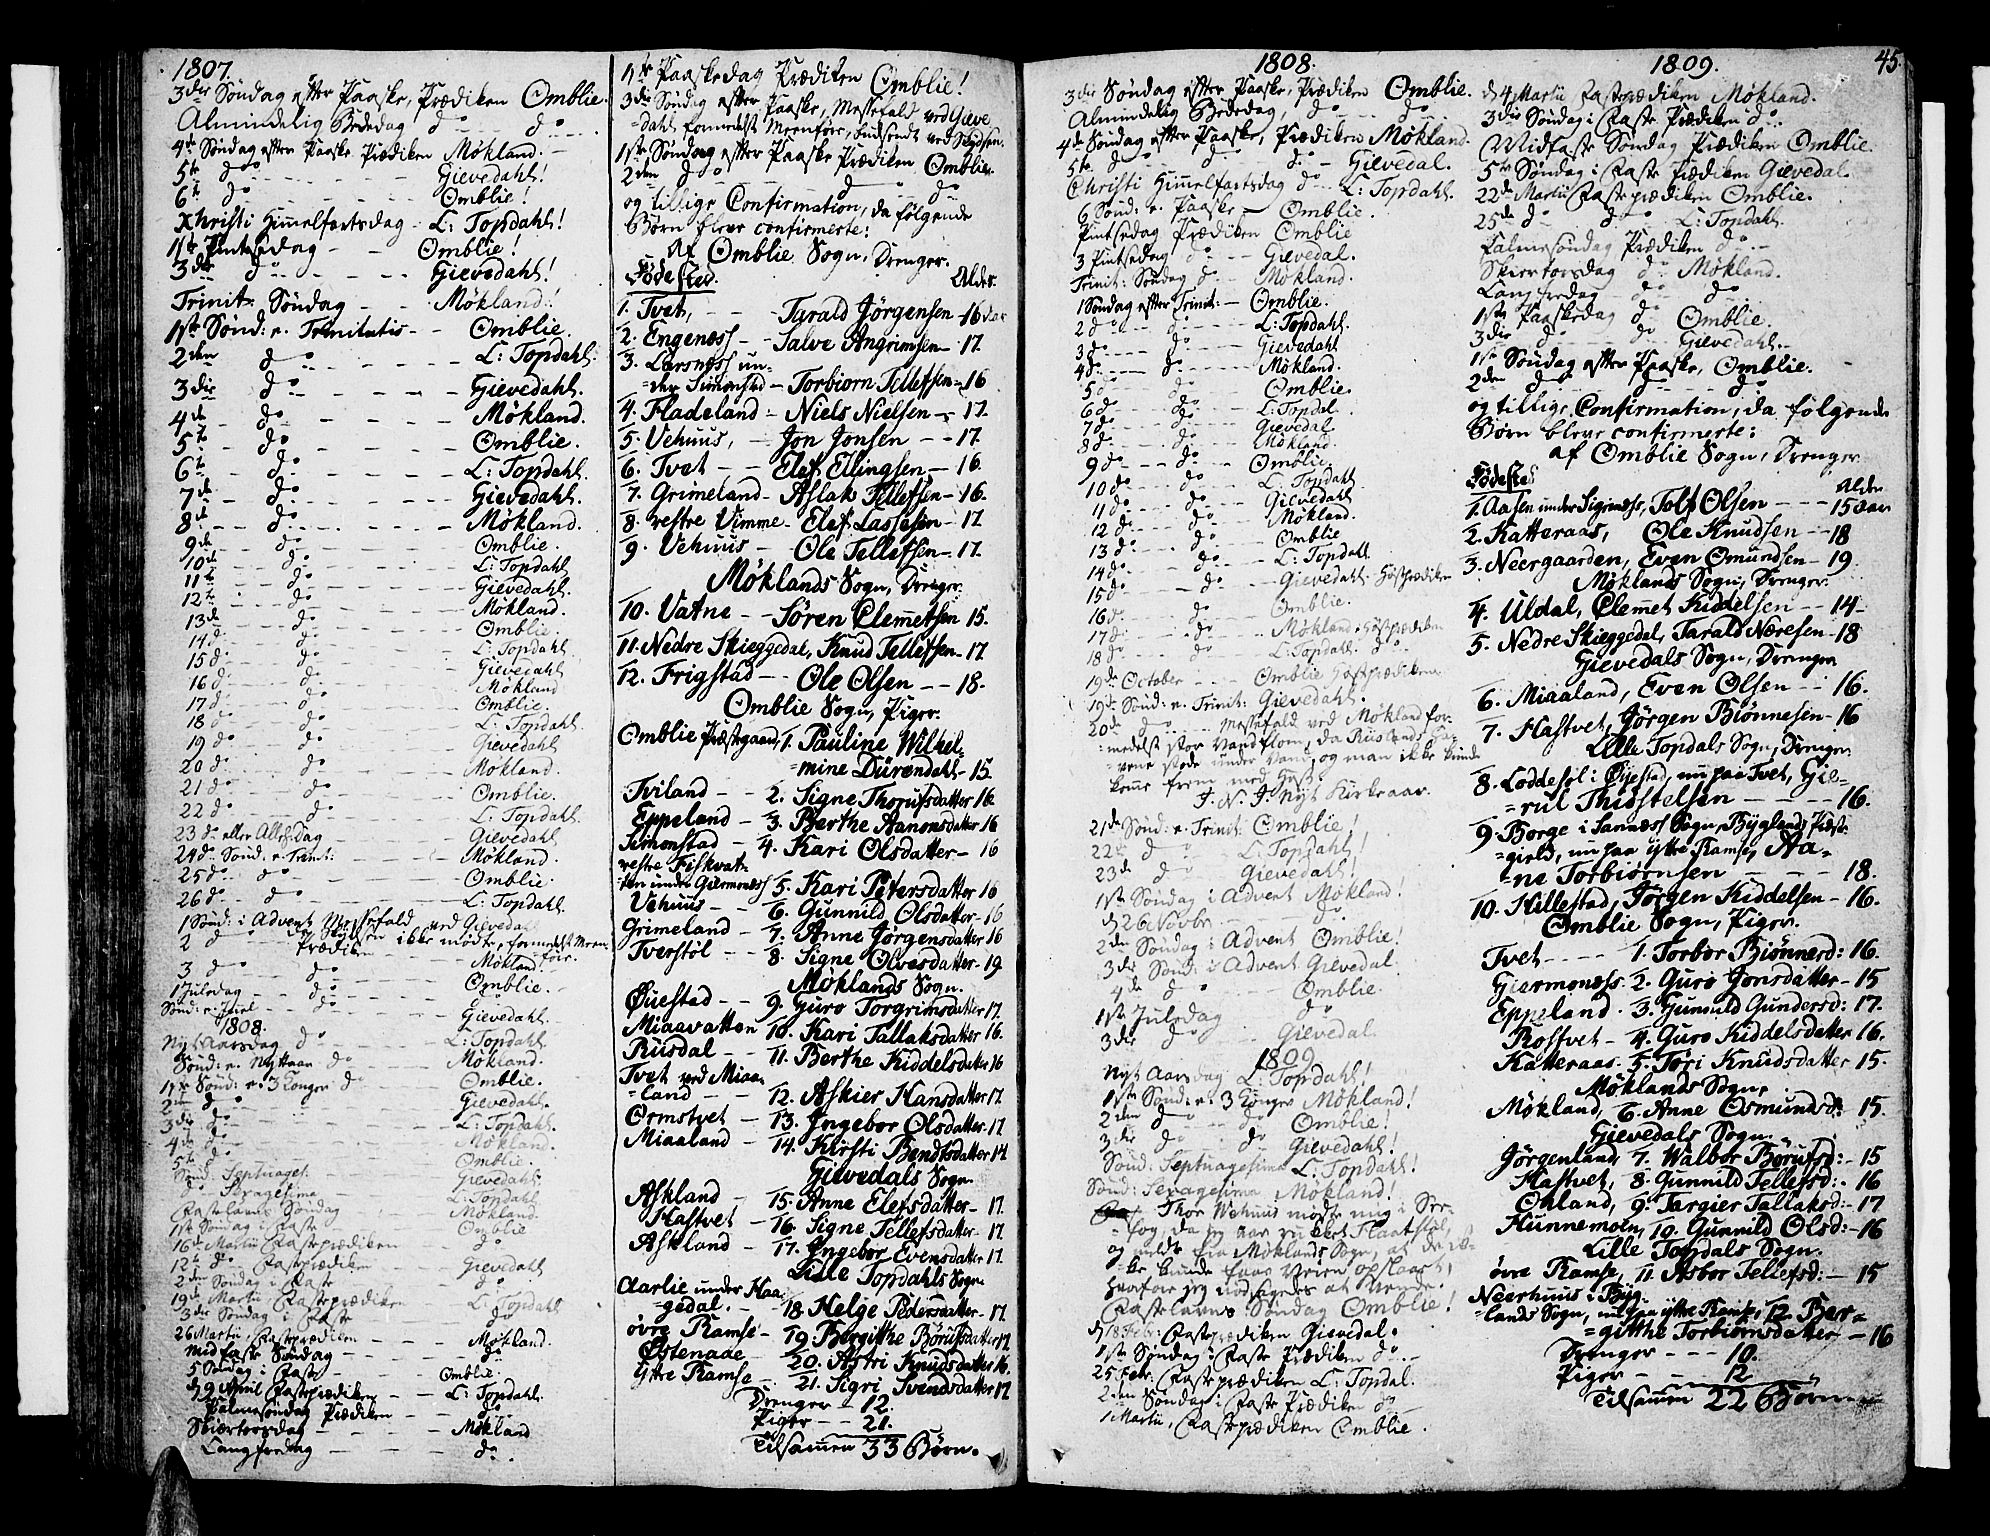 1807.
3die Søndag efter Paaske, Prædiken Omblie.
Almindelig Bededag do do
4de Søndag efter Paaske Prædiken Møkland.
5te do Gievedahl!
6te do Omblie!
Xhristi Himmelfartsdag L: Topdahl!
1ste Pintsedag Omblie!
3die do Gievedahl!
Trinit: Søndag Møkland!
1ste Sønd: e. Trinitatis Omblie.
2den do L: Topdahl.
3die do Gievedahl.
4de do Møkland.
5te do Omblie.
6te do L: Topdahl.
7de do Gievedahl.
8de do Møkland.
9de do Omblie.
10de do L: Topdahl
11te do Gievedahl.
12te do Møkland.
13de do Omblie.
14 do do L: Topdahl.
15 do do Gievedahl
16 do do Møkland
17 do do Omblie.
18 do do L: Topdahl
19 do do Gievedahl
20 do do Møkland.
21 do do Omblie.
22 do do L: Topdahl.
23 do eller Allehdag Gievedahl
24 do Sønd: e. Trinit: Møkland.
25 do do Omblie.
26 do do L: Topdahl.
1 Sønd: i Advent Messefald ved Gievedahl
2 do da Skydsen ikke mødte, formedelst Meen-
Prædiken føre.
3 do do Møkland.
1 Juledag do Omblie.
Sønd: e. Juul do Gievedahl.
1808.
Nyt Aarsdag do L: Topdahl.
Sønd: e. Nyttaar do Møkland.
1ste Sønd: e. 3 Konger do Omblie.
2den do Gievedahl.
3die do L: Topdahl.
4de do Møkland.
5te do Omblie.
Sønd: Septuages. Gievedahl.
do Sexagesima L: Topdahl
Fastelavns Søndag Møkland.
1ste Søndag i Faste Omblie
16de Martii Fasteprædiken do
12te do Fasteprædiken Gievedahl
2den Søndag i Faste do
19de Martii Fasteprædiken L: Topdahl
3die Søndag i Faste do
26 Martii, Fasteprædiken Møkland.
Midfaste Søndag do
5 Søndag i Faste Omblie.
d 9 April Fasteprædiken L: Topdahl.
Palmesøndag Prædiken do
Skiærtorsdag Møkland
Langfredag do
1ste Paaskedag Prædiken Omblie!
3die Søndag efter Paaske, Messefald ved Gieve
=dahl, formedelst Meenføre, budsendt ved Skydsen.
1ste Søndag efter Paaske Prædiken Omblie.
2den do do do
og tillige Confirmation, da følgende
Børn bleve confirmerte:
Af Omblie Sogn, Drenger.
Fødested. Alder.
1. Tvet, Tarald Jörgensen 16 Aar
2. Engenæss Salve Angrimsen 17.
3. Larsnæss un-
=der Simonstad Torbiorn Tellefsen 16
4. Fladeland Niels Nielsen 17.
5. Vehuus, Jon Jonsen 17.
6. Tvet Elef Ellingsen 16.
7. Grimeland Aslak Tellefsen 16.
8. vestre Vimme Elef Lassesen 17.
9. Vehuus Ole Tellefsen 17.
Møklands Sogn, Drenger.
10. Vatne Søren Clemetsen 15.
11. Nedre Skieggedal, Knud Tellefsen 17.
12. Frigstad Ole Olsen 18.
Omblie Sogn, Piger.
Omblie Præstegaard, 1. Pauline Wilhel-
=mine Dürendahl 15.
Tviland 2. Signe Thorufsdatter 16
Eppeland 3. Berthe Aanonsdatter 16
Simonstad 4. Kari Olsdatter 16
vestre Fiskvat-
ten under Giermonæss 5. Kari Petersdatter 16
Vehuus 6. Gunnild Olsdatter 16
Grimeland 7. Anne Jörgensdatter 16
Tverstöl 8. Signe Olvesdatter 19
Møklands Sogn.
Øuestad 9. Guro Torgrimsdatter 17.
Miaavatten 10. Kari Tallaksdatter 16.
Rüsdal 11. Berthe Kiddelsdatter 16
Tvet ved Miaa-
=land 12. Askier Hansdatter 17.
Ormstvet 13. Ingebor Olsdatter 17
Miaaland 14. Kirsti Bendtsdatter 14
Gievedals Sogn.
Askland 15. Anne Elefsdatter 17.
Hastvet 16. Signe Tellefsdatter 17.
Askland 17. Ingebor Evensdatter 17.
Lille Topdahls Sogn.
Aarlie under Haa-
=gedal. 18. Helge Pedersdatter 17.
övre Ramse 19. Bergitthe Börufsdatter 17.
Østenaae 20. Astri Knudsdatter 16.
Yttre Ramse 21. Sigri Svendsdatter 17
Drenger 12.
Piger 21.
Tilsammen 33 Børn.
1808.
3die Søndag efter Paaske, Prædiken Omblie.
Almindelig Bededag, do do
4de Søndag efter Paaske, Prædiken Møkland.
5te do do Gievedal.
Christi Himmelfartsdag do L: Topdahl.
6 Sønd: e. Paaske Omblie.
Pintsedag Prædiken Omblie
3 Pintsedag do Gievedal.
Trinit: Søndag do Møkland.
1 Søndag efter Trinit: Omblie.
2 do do L: Topdahl.
3 do do Gievedahl
4 do do Møkland.
5 do do Omblie.
6 do do L: Topdal.
7 do do Gievedal
8 do do Møkland.
9 do do Omblie.
10 do do L: Topdahl
11 do do Gievedahl
12 do do Møkland.
13 do do Omblie
14 do do L: Topdall
15 do do Gievedahl. Høstprædiken
16 do do Omblie.
17 do do Møkland. Høstprædiken
18 do do L: Topdahl. do
19de October Omblie Høstprædiken
19de Sønd: e. Trinit: Gievedahl.
20de do Messefald ved Møkland for-
=medelst stor Vandflom, da Rüslands
=vene stode under Vand, og man ikke kunde
komme frem med Hest.
J. N. J. Nyt Kirkeaar.
21de Sønd: e. Trinit: Omblie!
22 do do L: Topdahl!
23 do do Gievedahl!
1ste Søndag i Advent Møkland!
d 26 Novbr. do
2den Søndag i Advent Omblie!
3die Sønd: i Advent Gievedal.
4de do Omblie.
1ste Juledag do
3die do Gievedal.
1809
Nyt Aarsdag L: Topdahl!
1ste Sønd: e. 3 Konger Møkland!
2den do do Omblie!
3die do do Gievedahl!
Sønd: Septuagesima L: Topdahl!
Sønd: Sexagesima Møkland!
Thor Wehuus mødte mig i
=fog, da jeg var rukket Flaatstøl,
og meldte fra Møklands Sogn, at de ik-
=ke kunde faae Veien opslaaet,
hvorfore jeg nødsagedes at vende.
Fastelavns Søndag Omblie!
d 18 Febr. Fasteprædiken Gievedal.
1ste Søndag i Faste Prædiken do
25 Febr. Fasteprædiken L: Topdal.
2den Søndag i Faste Prædiken do
1 Martii, Fasteprædiken Omblie.
1809. 45.
d 4 Martii Fasteprædiken Møkland.
3die Søndag i Faste Prædiken do
Midfaste Søndag Prædiken Omblie.
5te Søndag i Faste Prædiken Gievedal.
22de Martii Fasteprædiken Omblie.
25de do do L: Topdahl.
Palmesøndag Prædiken do
Skiertorsdag do Møkland.
Langfredag do do
1ste Paaskedag do Omblie.
3die do do Gievedahl.
1ste Søndag efter Paaske, Omblie.
2den do do do
og tillige Confirmation, da følgende
Børn bleve confirmerte:
af Omblie Sogn, Drenger
Fødested Alder
1. Aasen under Sigrenæss, Tolf Olsen 15 Aar
2. Katteraas, Ole Knudsen 18
3. Neergaarden, Even Omundsen 19.
Møklands Sogn, Drenger.
4. Uldal, Clemet Kiddelsen 14
5. Nedre Skieggedal, Tarald Næresen 18
Gievedals Sogn, Drenger
6. Miaaland, Even Olsen 16.
7. Hastvet, Jörgen Biönnesen 16
Lille Topdals Sogn, Drenger.
8. Loddesøl i Øyestad, nu paa Tvet, Giel-
=rul Thidstelsen 16.
9. Borge i Sannæss Sogn, Byglands Præste
=gield, nu paa yttre Ramse, Aa-
=ne Torbiörnsen 18.
10. Hillestad, Jörgen Kiddelsen 16.
Omblie Sogn, Piger.
Tvet 1. Torbor Biönnesd: 16.
Giermonæss. 2. Guro Jonsdatter 15
Eppeland. 3. Gunnild Gundersd: 17.
Rostvet 4. Guro Kiddelsdatter 16.
Katteraas. 5. Tori Knudsdatter 15.
Møklands Sogn.
Møkland, 6. Anne Osmundsd: 15.
Gievedals Sogn.
Jörgenland, 7. Walbor Börufsd: 15
Hastvet, 8. Gunnild Tellefsd: 16
Ohland, 9. Targier Tallaksd: 17
Hünnemoln, 10. Gunnild Olsd: 16
Lille Topdals Sogn.
övre Ramse, 11. Asbor Tellefsd: 15
Neerhuus i Byg-
=lands Sogn, nu paa yttre Ramse, 12. Ber-
=gitthe Torbiörnsdatter 16
Drenger 10.
Piger 12
Tilsammen 22 Børn